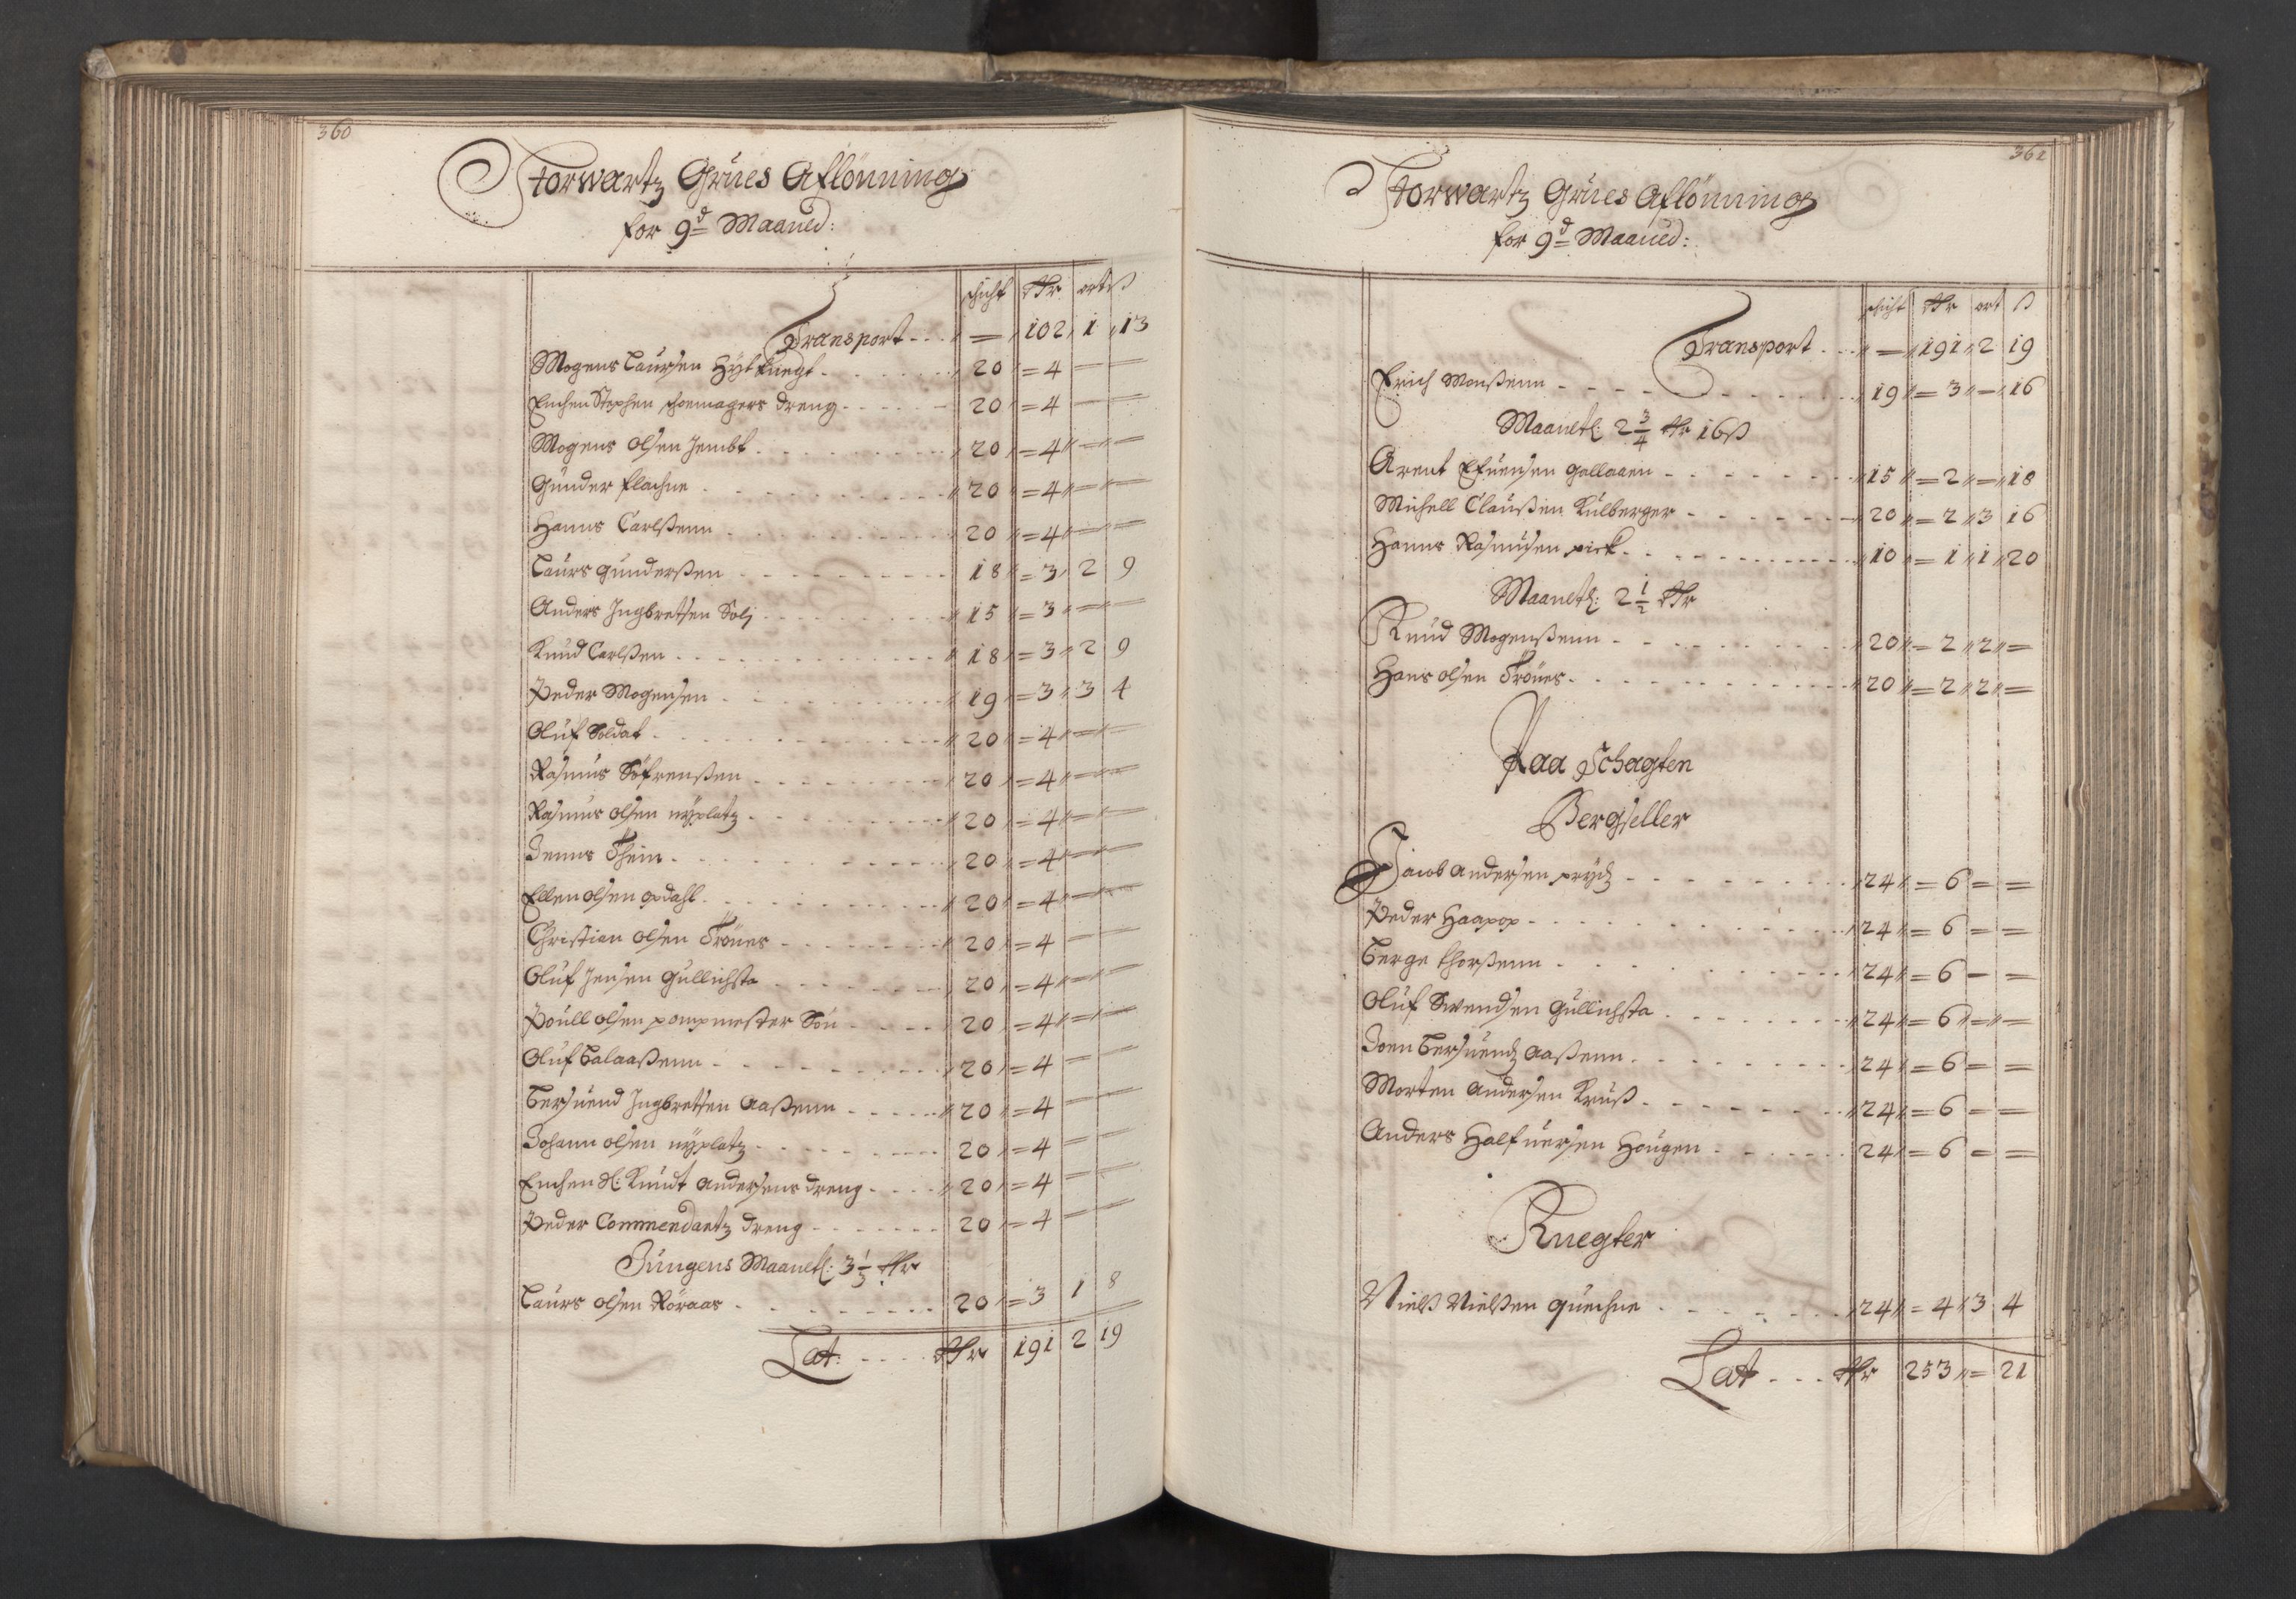 360
Storwartz Grues Aflönning
for 9d Maaned:
schicht Rdr ort ß
Transport - - - — 102 1 13
Mogens Laursen Hÿtknegt - 20 = 4 — —
Enchen Stephen schoemagers dreng - 20 = 4 — —
Mogens Olsen Jembt - 20 = 4 — —
Gunder flachne - 20 = 4 — —
Hanns Carlßenn - 20 = 4 — —
Laurs gunderßen - 18 = 3 2 9
Anders Ingbretsen Solj - 15 = 3 — —
Knud Carlßen - 18 = 3 2 9
Peder Mogensen - 19 = 3 3 4
Oluf Soldat - 20 = 4 — —
Rasmus Söfrenßen - 20 = 4 — —
Rasmus olsen nÿplatz - 20 = 4 — —
Jenns Thein - 20 = 4 — —
Ellen olsen opdahl - 20 = 4 — —
Christian olsen Trönes - 20 = 4 — —
Oluf Jensen Gullichsta - 20 = 4 — —
Pouell olsen pompmester Sön - 20 = 4 — —
Oluf Balaaßenn - 20 = 4 — —
Bersuend Ingbretsen Aaßenn - 20 = 4 — —
Johann olsen nÿplatz - 20 = 4 — —
Enchen Sl: Knudt Andersens dreng - 20 = 4 — —
Peder Commendantz dreng - 20 = 4 — —
Jungens Maanetl: 3 1/3 Rdr
Laurs olsen Röraas - 20 = 3 1 8
Lat: - - - Rdr 191 2 19
361
Storwartz Grues Aflönning
for 9d Maaned:
schicht Rdr ort ß
Transport - - — 191 2 19
Erich Monßenn - 19 = 3 — 16
Maanetl: 2 3/4 Rdr 16 ß
Arent Efuensen gallaaen - 15 = 2 — 18
Michell Claußen Kulberger - 20 = 2 3 16
Hanns Rasmusen pick - 10 = 1 1 20
Maanetl: 2 1/2 Rdr
Knud Mogenßenn - 20 = 2 2 =
Hans olsen Trönes - 20 = 2 2 =
Paa Schagten
Bergseller
Jacob Andersen prÿdz - 24 = 6 = =
Peder Haapop - 24 = 6 = =
Berge thorßenn - 24 = 6 = =
Oluf Swendsen Gullichsta - 24 = 6 = =
Joen Bersuendz Aaßenn - 24 = 6 = =
Morten Andersen Kruß - 24 = 6 = =
Anders Halfuersen Hougen - 24 = 6 = =
Knegter
Nielß Nielßen quechne - 24 = 4 3 4
Lat - - - Rdr 253 = 21